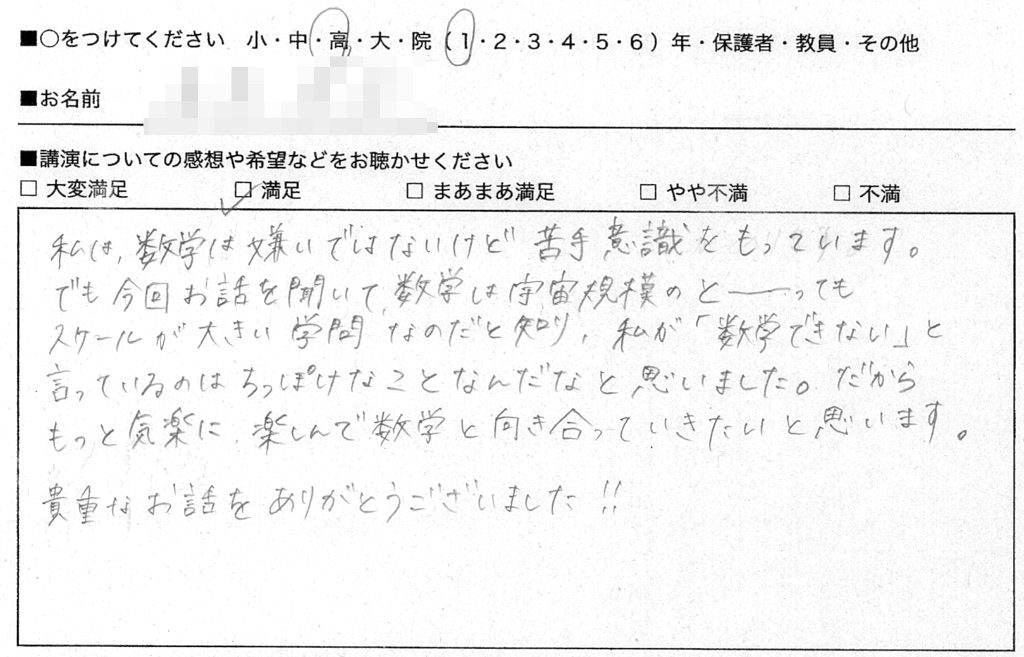 ■○をつけてください 小・中・高・大・院（1・2・3・4・5・6）年・保護者・教員・その他
■お名前
■講演についての感想や希望などをお聴かせください
□ 大変満足 □ 満足 □ まあまあ満足 □ やや不満 □ 不満
私は、数学は嫌いではないけど苦手意識をもっています。
でも今回お話を聞いて、数学は宇宙規模のと――っても
スケールが大きい学問なのだと知り、私が「数学できない」と
言っているのはちっぽけなことなんだなと思いました。だから
もっと気楽に、楽しんで数学と向き合っていきたいと思います。
貴重なお話をありがとうございました!!